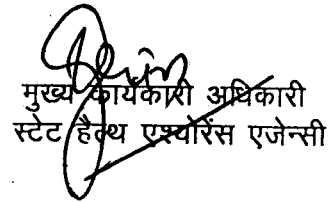 मुख्य कार्यकारी अधिकारी
स्टेट हैल्थ एश्योरेंस एजेन्सी